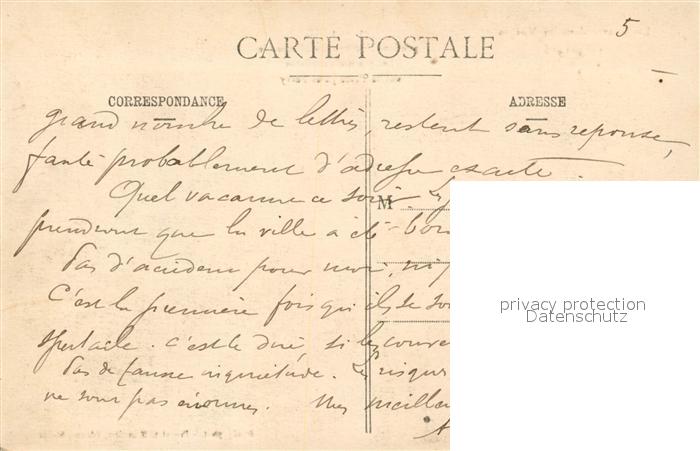 5
CARTE POSTALE
CORRESPONDANCE
ADRESSE
grand nombre de lettres, restent sans reponse,
faute probablement d'adresse exacte.
Quel vacarme ce soir. Les
M
prendront que la ville a été bom
Pas d'accident pour moi, ni p
C'est la première fois qu'ils se son
spectacle. C'est le dire si les couver
Pas de fausse inquiétude. Les risque
ne sont pas énormes. Mes meilleu
privacy protection
Datenschutz